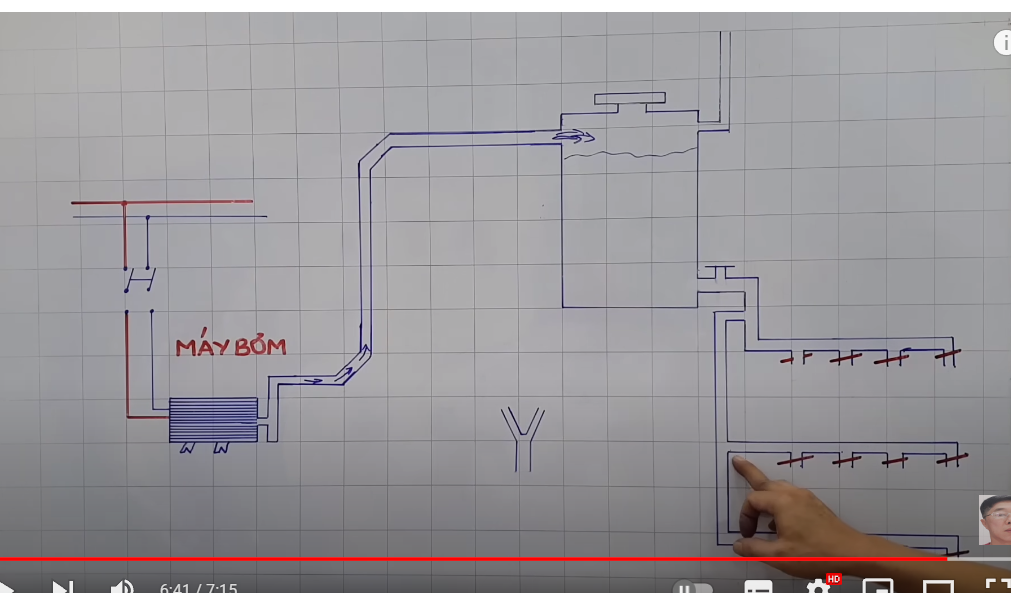 MÁY BƠM
6:41 / 7:15
HD